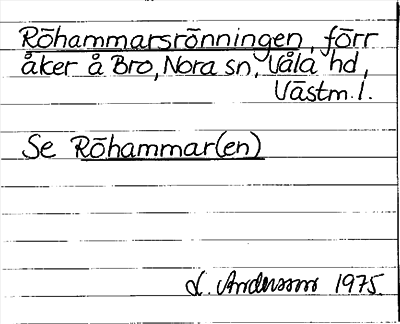 Röhammarsrönningen, förr
åker å Bro, Nora sn, Våla hd,
Västm. l.
Se Röhammar(en)
L. Andersson 1975